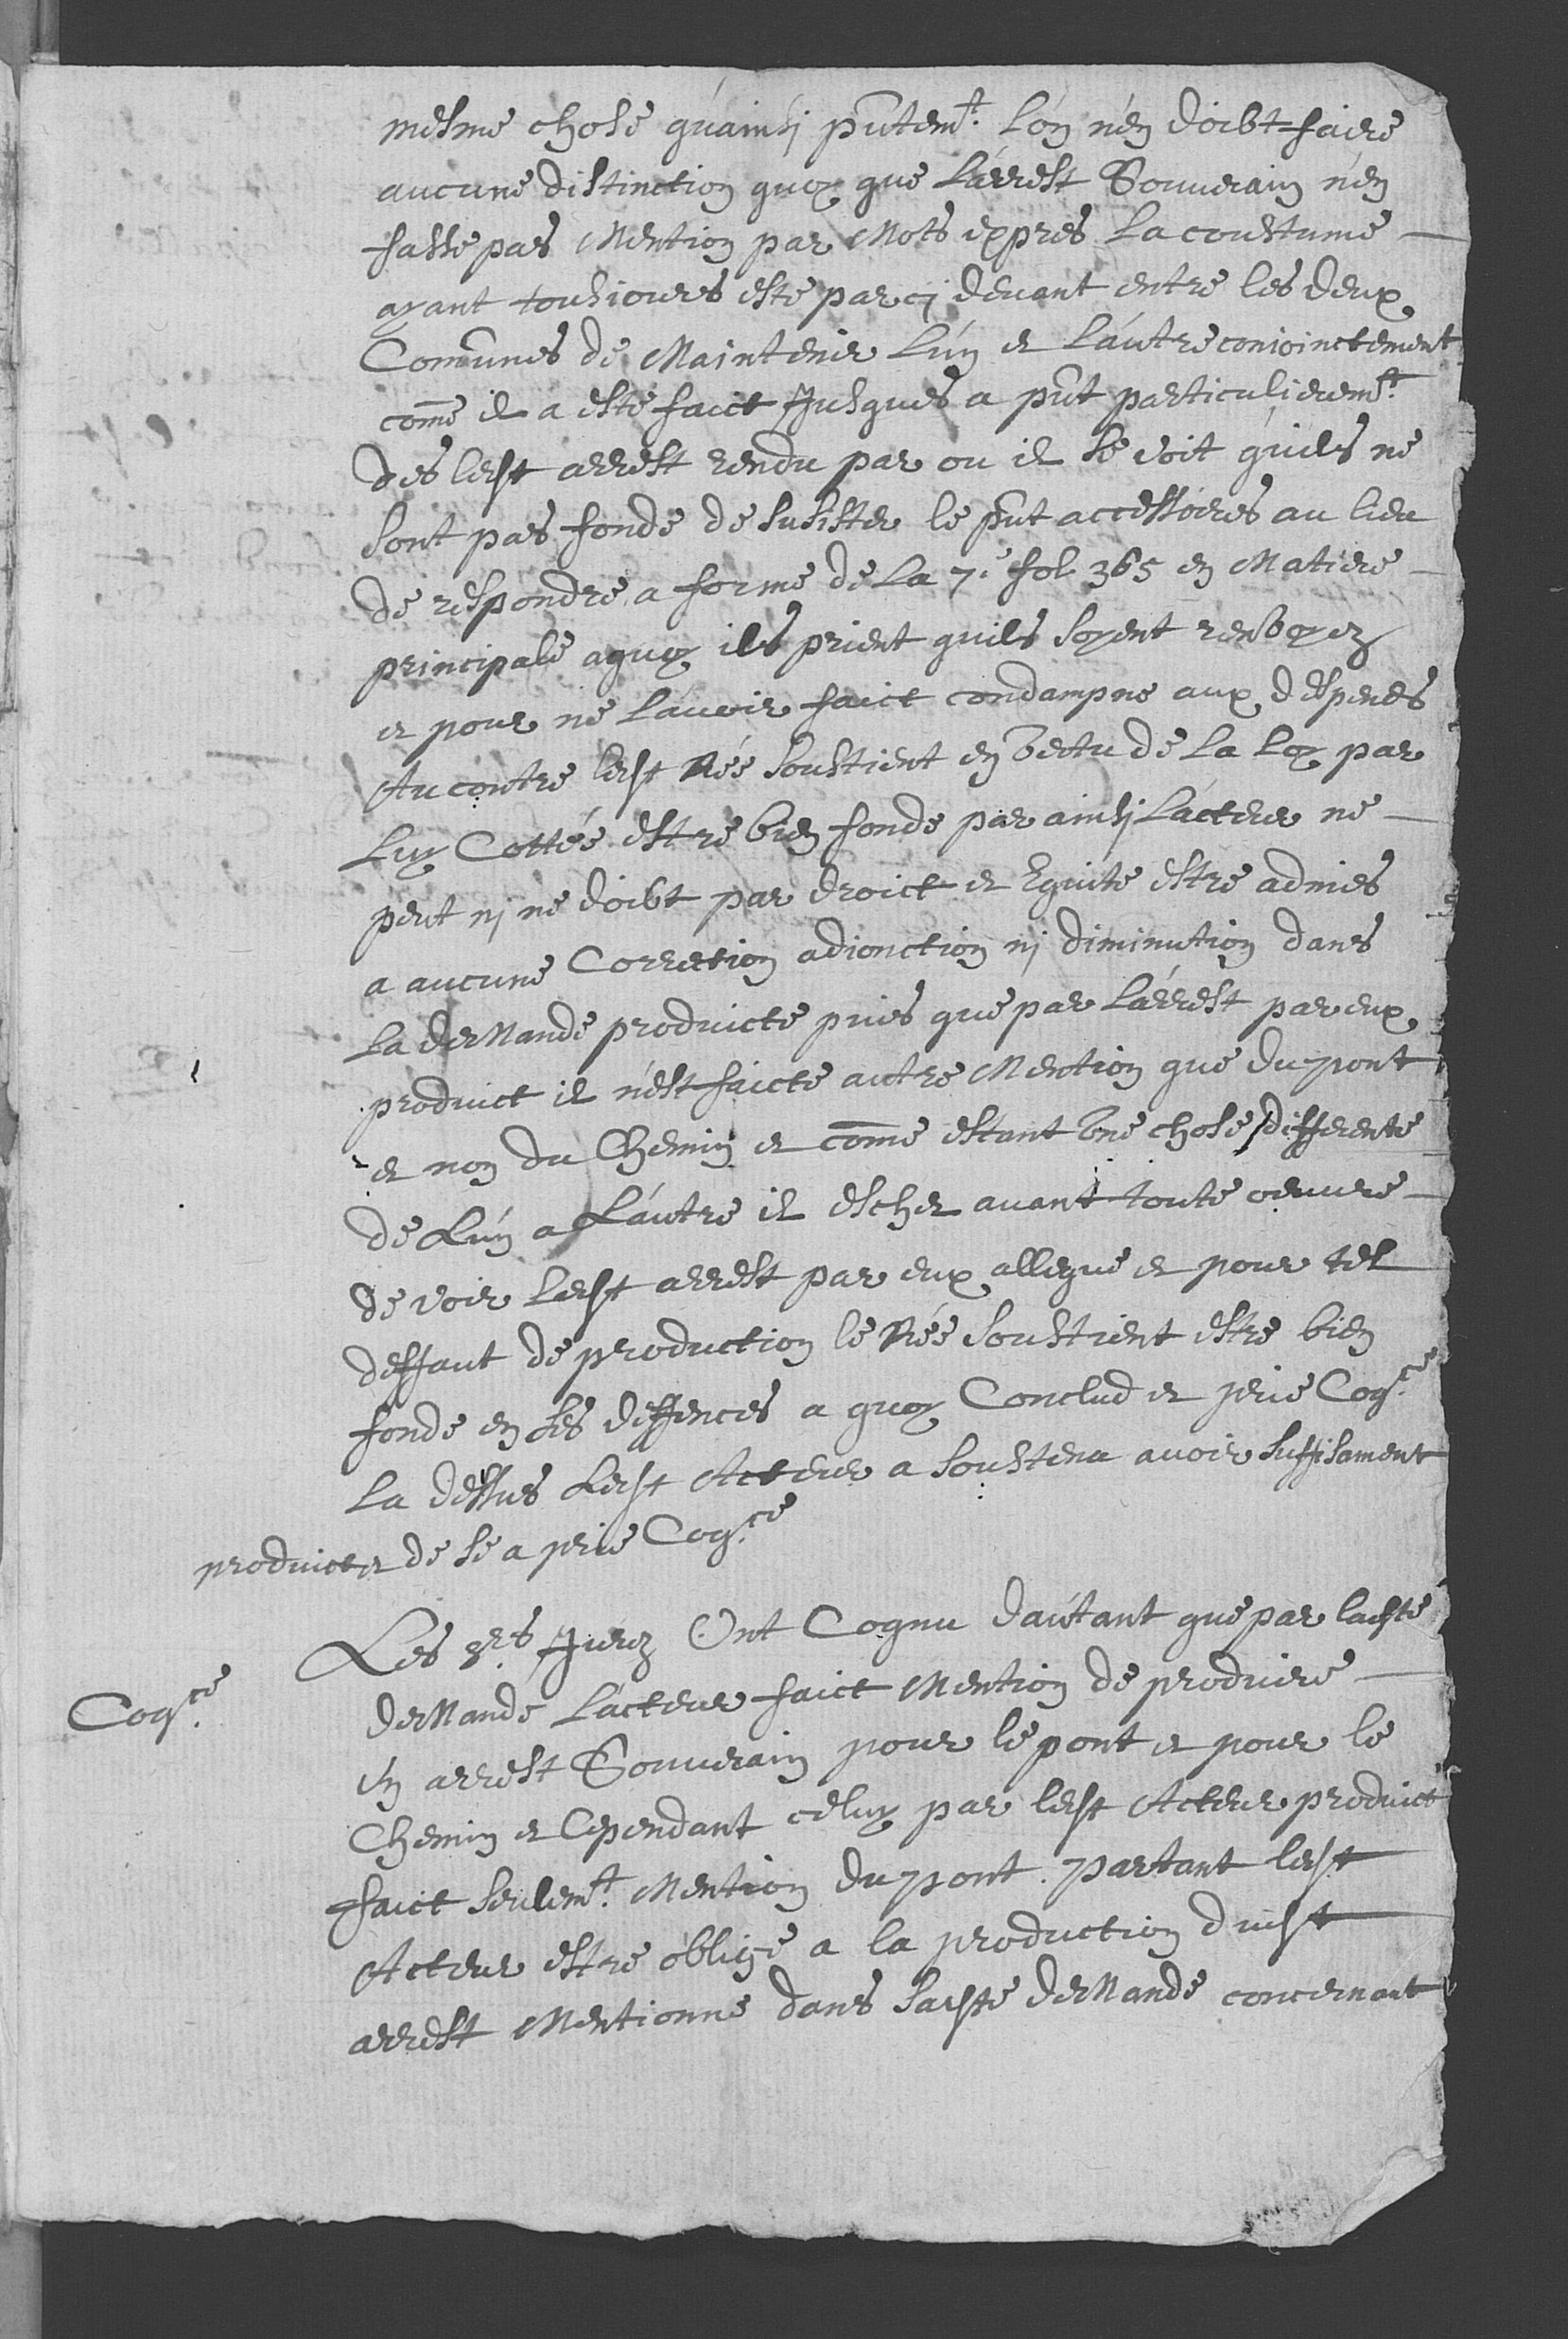 mesme chose qu'ainsi pñtem.t l'on n'en doibt faire
aucune distinction quoy que L'arrest Souverain n'en
fasse pas Mention par Mots expres La coustume
ayant tousiours esté par cj devant entre les deux
Comũnes de Maintenir L'un et L'autre conioinctement
com̃e il a esté faict Jusques a pñt particulierem.t
des ledt arrest rendu par ou il se voit qu'ils ne
sont pas fondé de susister le pñt accessoires au lieu
de respondre a forme de La 7.e fol 365 en Matiere
principale aquoy ils prient quils soyent renvoyez
et pour ne L'avoir faict condampne aux despends
Au contre ledt Rée soustient en vertu de La Loy par
Luy Cottée estre bien fondé par ainsj L'acteur ne
peut nj ne doibt par droict et Equite estre admis
a aucune Correction adionction nj diminution dans
La deMande produicte puis que par L'arrest par eux
produict il n'est faicte autre Mention que du pont
et non du Chemin et com̃e estant vne chose differente
de L'un a L'autre il eschet avant toute oeuvre
de voir Ledt arrest par eux allegue et pour tel
deffaut de production le Rée soustient estre bien
fonde en ses deffences a quoy Conclud et prie Cog.ce
La dessus Ledt Acteur a soustenu avoir suffisament
produict et de se a prie Cog.ce
Les Srs Jurez Ont Cognu d'autant que par ladte
Cog.ce
deMande L'acteur faict Mention de produire
vn arrest Souverain pour le pont et pour le
Chemin et Cependant celuy par ledt Acteur produict
faict seulem.t Mention du pont . partant ledt
Acteur estre obligé a la production dudt
arrest Mentionne dans sadte deMande concernant